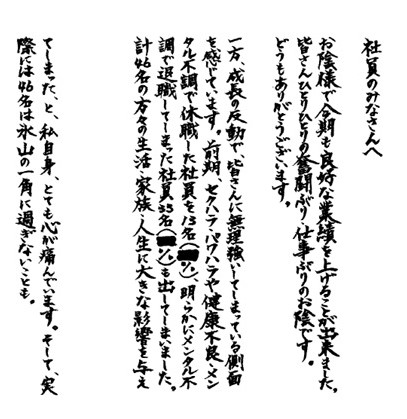 社員のみなさんへ
お陰様で今期も良好な業績を上げることが出来ました。
皆さんひとりひとりの奮闘ぶり・仕事ぶりのお陰です。
どうもありがとうございます。
一方、成長の反動で、皆さんに無理強いしてしまっている側面
を感じています。前期、セクハラ・パワハラや健康不良・メン
タル不調で休職した社員を13名(%)、明らかにメンタル不
調で退職してしまった社員33名(%)も出してしまいました。
計46名の方々の生活・家族・人生に大きな影響を与え
てしまった、と、私自身、とても心が痛んでいます。そして、実
際には46名は氷山の一角に過ぎないことも。